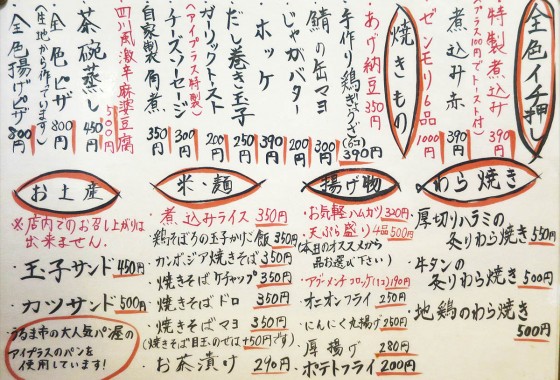 全色イチ押し
・特製煮込み 390円
(プラス100円でトースト付)
・煮込み赤 390円
・ゼンモリ6品 1000円
焼きもの
・あげ納豆 350円
・手作り鶏ぎょうざ(6コ) 390円
・鯖の缶マヨ 300円
・じゃがバター 200円
・ホッケ 390円
・だし巻き玉子 250円
・ガーリックトースト 200円
(アイプラス特製)
・チーズソーセージ 300円
・自家製角煮 350円
・四川風激辛麻婆豆腐 500円
・茶碗蒸し 450円
・全色ピザ 800円
(生地から作っています)
・全色揚げピザ 800円
わら焼き
・厚切りハラミの
炙りわら焼き 550円
・牛タンの
炙りわら焼き 500円
・地鶏のわら焼き
500円
揚げ物
・お気軽ハムカツ 320円
・天ぷら盛り4品 500円
(本日のオススメから
お選び下さい)
・アグーメンチコロッケ(1コ) 190円
・オニオンフライ 250円
・にんにく丸揚げ 250円
・厚揚げ 280円
・ポテトフライ 200円
米・麺
・煮込みライス 350円
・鶏そぼろの玉子かけご飯 350円
・カンボジア焼きそば 350円
・焼きそばケチャップ 350円
・焼きそばドロ 350円
・焼きそばマヨ 350円
(焼きそば目玉のせは+50円です)
・お茶漬け 290円
お土産
※店内でのお召し上がりは
出来ません。
・玉子サンド 450円
・カツサンド 500円
うるま市の大人気パン屋の
アイプラスのパンを
使用しています!